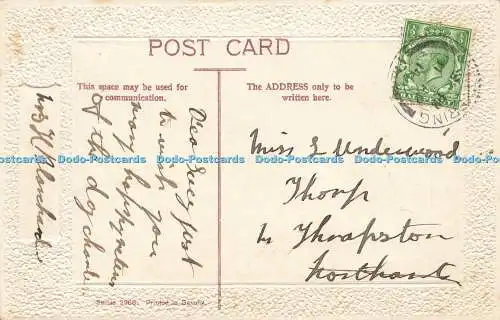 POST CARD
This space may be used for
communication.
The ADDRESS only to be
written here.
Dear Lucy just
to wish you
many happy returns
of the day
Miss L Underwood
Thorp
Thrapston
Northants
Dodo-Postcards Dodo-Postcards Dodo-Postcards Dodo-Postcards Dodo-Postcards Dodo-Postcards
Series 2968. Printed in Saxony.